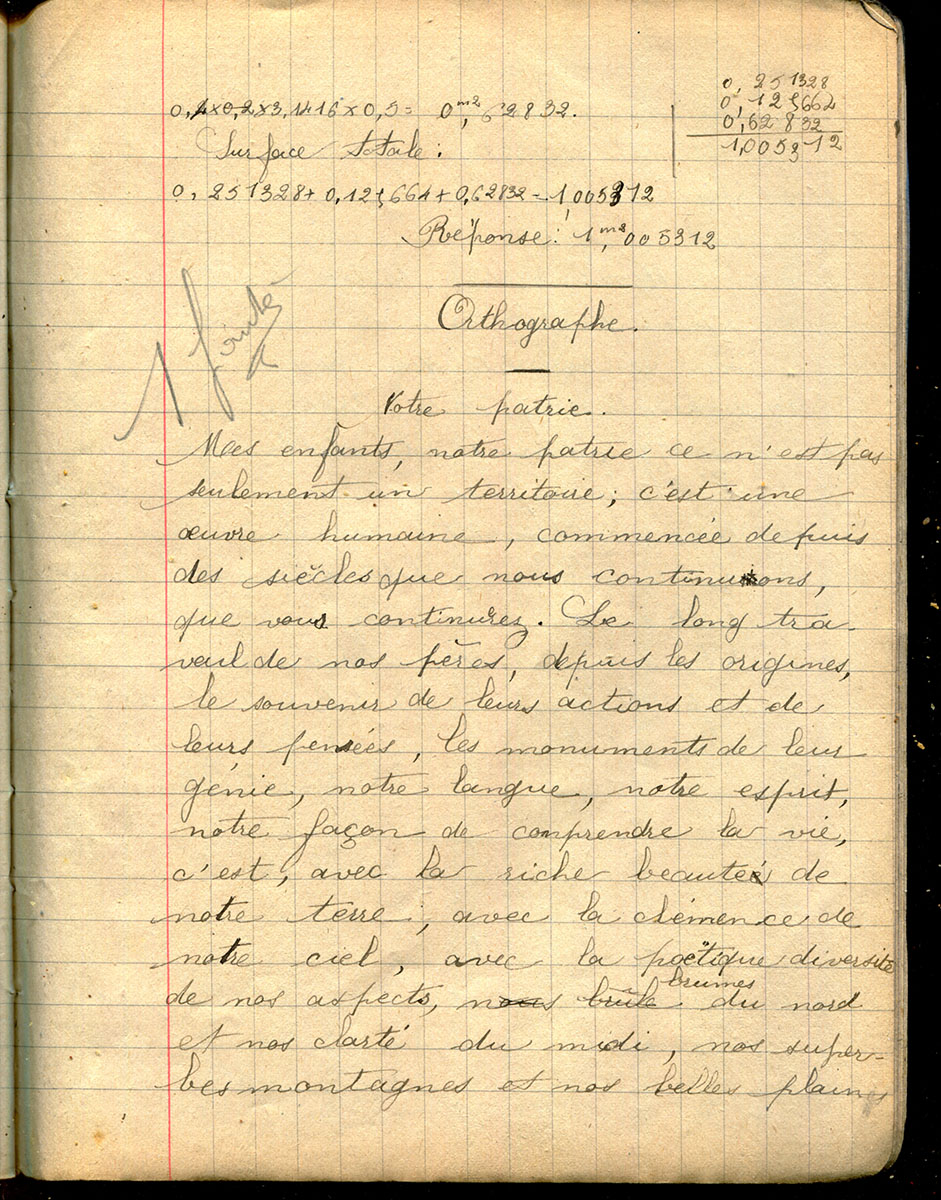 0,4x0,2x3,1416 x 0,5 = 0,m262832.
0,251328
0,125664
0,62832
1,005312
Surface totale :
0,251328 + 0,125664 + 0,62832 = 1,005312
Réponse : 1m2,005312
Orthographe.
1 faute
Notre patrie.
Mes enfants, notre patrie ce n'est pas
seulement un territoire ; c'est une
œuvre humaine, commencée depuis
des siècles que nous continuons,
que vous continuerez. Le long tra-
vail de nos pères, depuis les origines,
le souvenir de leurs actions et de
leurs pensées, les monuments de leur
génie, notre langue, notre esprit,
notre façon de comprendre la vie,
c'est, avec la riche beauté de
notre terre, avec la clémence de
notre ciel, avec la poëtique diversité
brumes
de nos aspects, nous brûle du nord
et nos clarté du midi, nos super-
bes montagnes et nos belles plaines